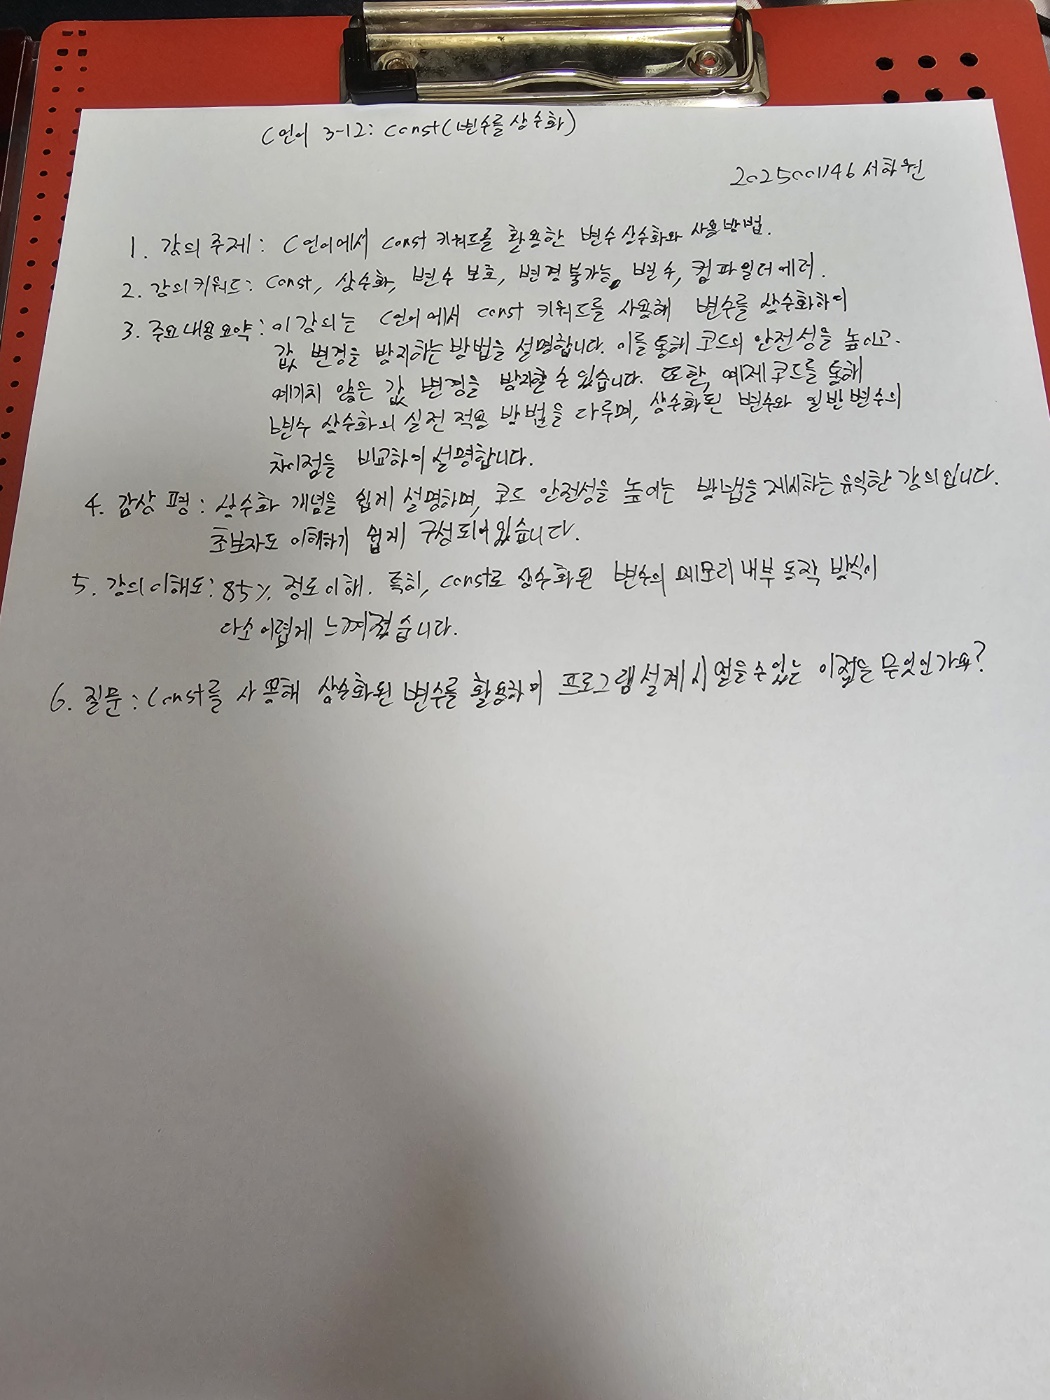 C언어 3-12: const(변수를 상수화)
2025001146 서하원
1. 강의 주제 : C언어에서 const 키워드를 활용한 변수 상수화와 사용 방법.
2. 강의 키워드 : const, 상수화, 변수 보호, 변경 불가능, 변수, 컴파일러 에러.
3. 주요 내용 요약 : 이 강의는 C언어에서 const 키워드를 사용해 변수를 상수화하여
값 변경을 방지하는 방법을 설명합니다. 이를 통해 코드의 안전성을 높이고.
예기치 않은 값 변경을 방지할 수 있습니다. 또한, 예제 코드를 통해
변수 상수화의 실전 적용 방법을 다루며, 상수화된 변수와 일반 변수의
차이점을 비교하여 설명합니다.
4. 감상 평 : 상수화 개념을 쉽게 설명하며, 코드 안전성을 높이는 방법을 제시하는 유익한 강의입니다.
초보자도 이해하기 쉽게 구성되어있습니다.
5. 강의 이해도 : 85% 정도 이해. 특히, const로 상수화된 변수의 메모리 내부 동작 방식이
다소 어렵게 느껴졌습니다.
6. 질문 : const를 사용해 상수화된 변수를 활용하여 프로그램 설계 시 얻을 수 있는 이점은 무엇인가요?